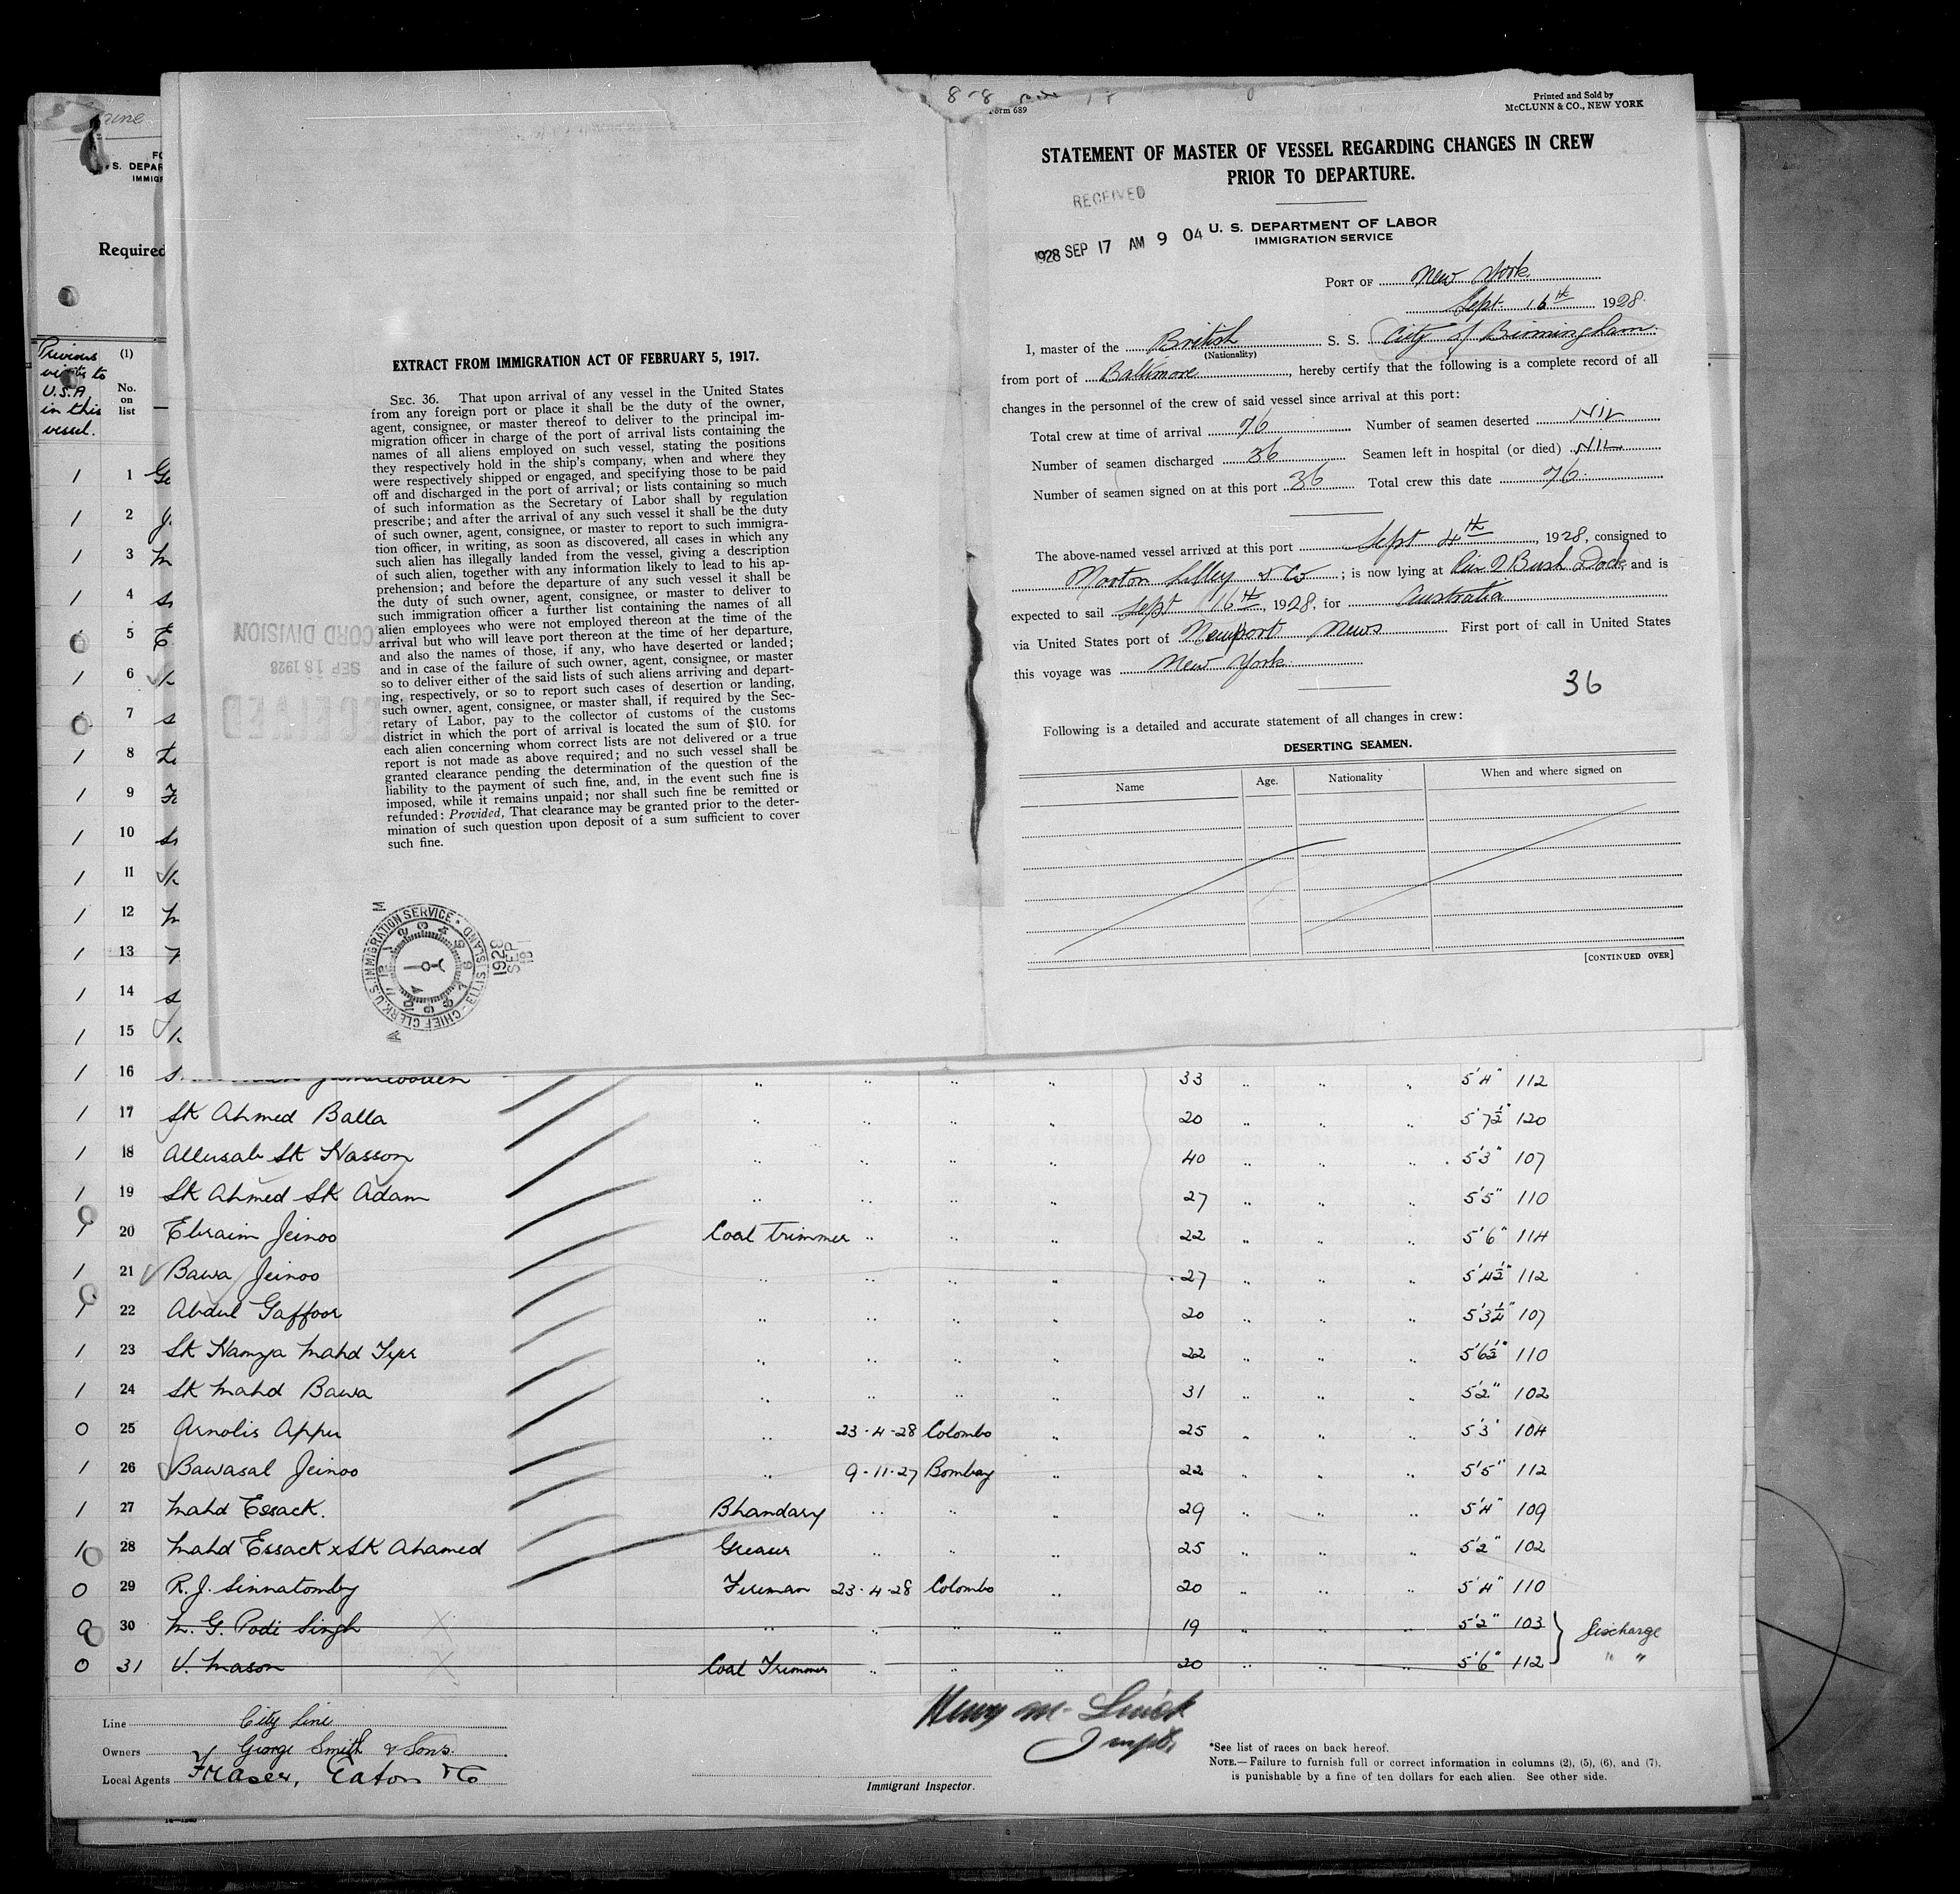 8-8
Form 689
Printed and Sold by
McCLUNN & CO., NEW YORK
STATEMENT OF MASTER OF VESSEL REGARDING CHANGES IN CREW
PRIOR TO DEPARTURE.
RECEIVED
1928 SEP 17 AM 9 04
U. S. DEPARTMENT OF LABOR
IMMIGRATION SERVICE
PORT OF New York
Sept. 16th 1928.
I, master of the British S. S. City of Birmingham.
(Nationality)
from port of Baltimore, hereby certify that the following is a complete record of all
changes in the personnel of the crew of said vessel since arrival at this port:
Total crew at time of arrival 76 Number of seamen deserted NIL
Number of seamen discharged 36 Seamen left in hospital (or died) NIL
Number of seamen signed on at this port 36 Total crew this date 76.
The above-named vessel arrived at this port Sept 4th, 1928, consigned to
Norton Lilley & Co; is now lying at Pier 2 Bush Dock and is
expected to sail Sept 16th, 1928, for Australia
via United States port of Newport News First port of call in United States
this voyage was New York.
36
Following is a detailed and accurate statement of all changes in crew:
DESERTING SEAMEN.
Name Age. Nationality When and where signed on
[CONTINUED OVER]
EXTRACT FROM IMMIGRATION ACT OF FEBRUARY 5, 1917.
SEC. 36. That upon arrival of any vessel in the United States
from any foreign port or place it shall be the duty of the owner,
agent, consignee, or master thereof to deliver to the principal im-
migration officer in charge of the port of arrival lists containing the
names of all aliens employed on such vessel, stating the positions
they respectively hold in the ship's company, when and where they
were respectively shipped or engaged, and specifying those to be paid
off and discharged in the port of arrival; or lists containing so much
of such information as the Secretary of Labor shall by regulation
prescribe; and after the arrival of any such vessel it shall be the duty
of such owner, agent, consignee, or master to report to such immigra-
tion officer, in writing, as soon as discovered, all cases in which any
such alien has illegally landed from the vessel, giving a description
of such alien, together with any information likely to lead to his ap-
prehension; and before the departure of any such vessel it shall be
the duty of such owner, agent, consignee, or master to deliver to
such immigration officer a further list containing the names of all
alien employees who were not employed thereon at the time of the
arrival but who will leave port thereon at the time of her departure,
and also the names of those, if any, who have deserted or landed;
and in case of the failure of such owner, agent, consignee, or master
so to deliver either of the said lists of such aliens arriving and depart-
ing, respectively, or so to report such cases of desertion or landing,
such owner, agent, consignee, or master shall, if required by the Sec-
retary of Labor, pay to the collector of customs of the customs
district in which the port of arrival is located the sum of $10. for
each alien concerning whom correct lists are not delivered or a true
report is not made as above required; and no such vessel shall be
granted clearance pending the determination of the question of the
liability to the payment of such fine, and, in the event such fine is
imposed, while it remains unpaid; nor shall such fine be remitted or
refunded: Provided, That clearance may be granted prior to the deter-
mination of such question upon deposit of a sum sufficient to cover
such fine.
CORD DIVISION
SEP 18 1928
CEIVED
CHIEF CLERK. U.S. IMMIGRATION SERVICE · ELLIS ISLAND
1928
SEP
Required
Previous visits to U.S.A in this vessel.
(1)
No. on list
1 1
1 2
1 3
1 4
5
1 6
7
1 8
1 9
1 10
1 11
1 12
1 13
1 14
1 15
1 16 33 5'4" 112
1 17 Sk Ahmed Balla 20 5'7½" 120
1 18 Allusab Sk Hasson 40 5'3" 107
1 19 Sk Ahmed Sk Adam 27 5'5" 110
1 20 Ebraim Jeinoo Coal Trimmer 22 5'6" 114
1 21 Bawa Jeinoo 27 5'4½" 112
1 22 Abdul Gaffoor 20 5'3¼" 107
1 23 Sk Hamza Mahd 22 5'6½" 110
1 24 Sk Mahd Bawa 31 5'2" 102
0 25 Arnolis Appu 23-4-28 Colombo 25 5'3" 104
1 26 Bawasal Jeinoo 9-11-27 Bombay 22 5'5" 112
1 27 Mahd Essack. Bhandary 29 5'4" 109
1 28 Mahd Essack x Sk Ahamed Greaser 25 5'2" 102
0 29 R. J. Sinnatomby Fireman 23-4-28 Colombo 20 5'4" 110
0 30 M. G. Podi Singh 19 5'2" 103 Discharge
0 31 V. Mason Coal Trimmer 20 5'6" 112 " "
Line City Line
Owners George Smith & Sons.
Local Agents Fraser, Eaton & Co
Immigrant Inspector.
*See list of races on back hereof.
NOTE.—Failure to furnish full or correct information in columns (2), (5), (6), and (7),
is punishable by a fine of ten dollars for each alien. See other side.